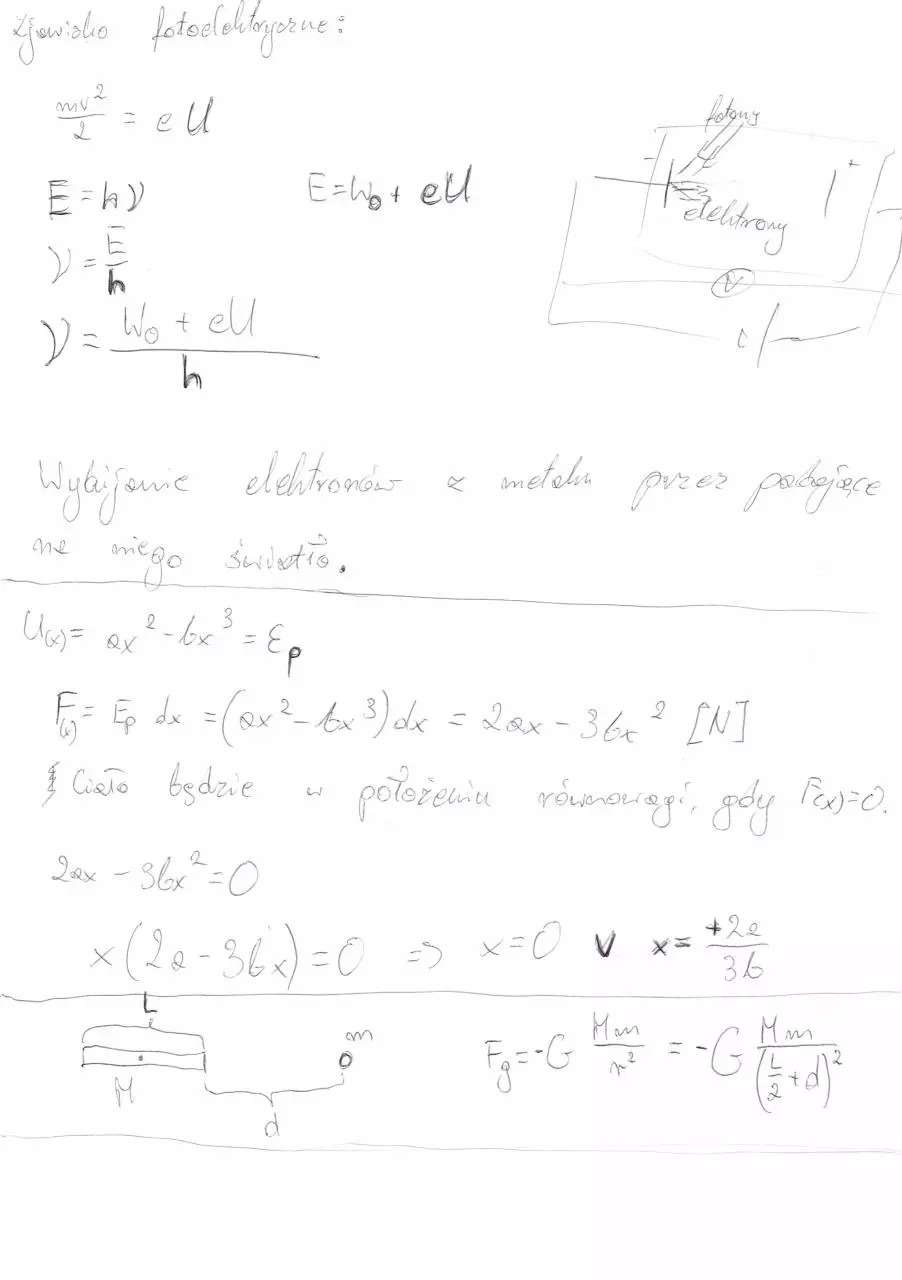 Zjawisko fotoelektryczne:
mv²/2 = eU
fotony
- +
elektrony
V
E = hν E = W₀ + eU
ν = E/h
ν = (W₀ + eU)/h
Wybijanie elektronów z metalu przez padające
na niego światło.
U(x) = ax² - bx³ = Ep
F(x) = Ep dx = (ax² - bx³)dx = 2ax - 3bx² [N]
Ciało będzie w położeniu równowagi, gdy F(x)=0.
2ax - 3bx² = 0
x(2a - 3bx) = 0 => x = 0 v x = +2a/3b
L
m
M
d
Fg = -G Mm/r² = -G Mm/(L/2 + d)²